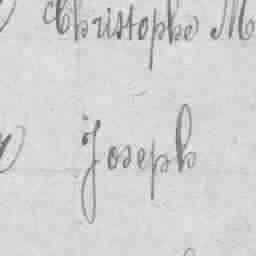 Christophe M
Joseph